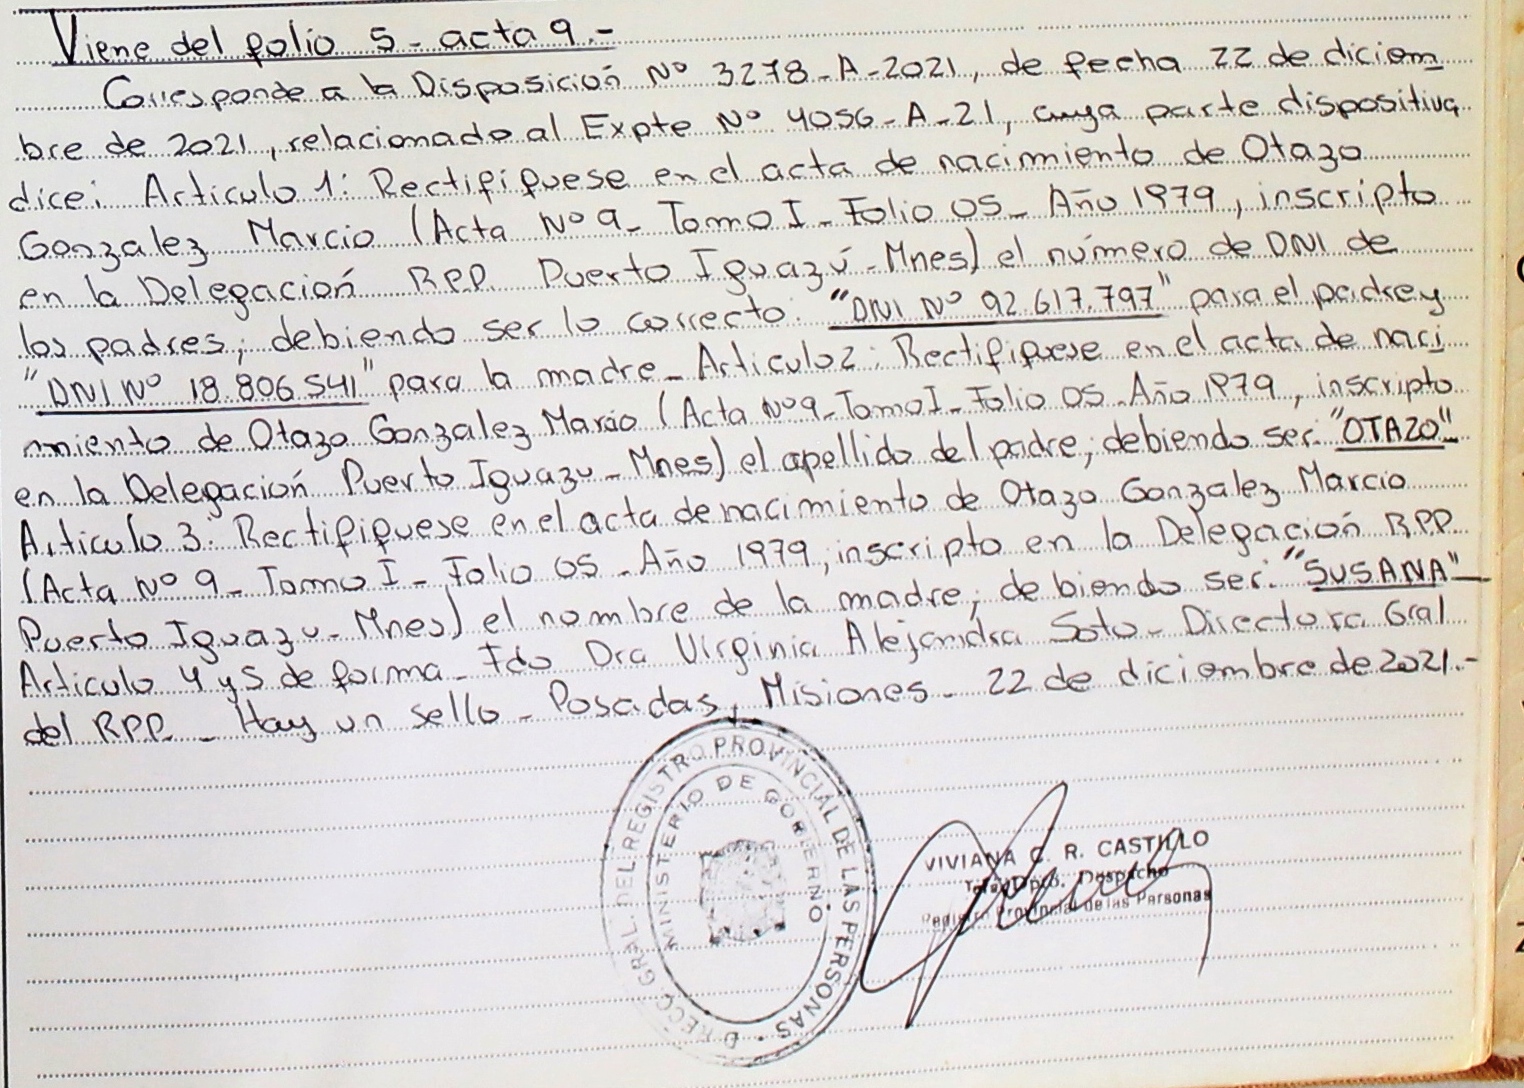 Viene del folio 5 - acta 9.-
Corresponde a la Disposición Nº 3278-A-2021, de fecha 22 de diciem
bre de 2021, relacionado al Expte Nº 4056-A-21, cuya parte dispositiva
dice: Articulo 1: Rectifíquese en el acta de nacimiento de Otazo
Gonzalez Marcio (Acta Nº 9 - Tomo I - Folio 05 - Año 1979, inscripto
en la Delegación RPP. Puerto Iguazú - Mnes) el número de DNI de
los padres, debiendo ser lo correcto: "DNI Nº 92.617.797" para el padre y
"DNI Nº 18.806.541" para la madre - Articulo 2: Rectifiquese en el acta de naci
miento de Otazo Gonzalez Marcio (Acta Nº 9 - Tomo I - Folio 05 - Año 1979, inscripto
en la Delegación Puerto Iguazu - Mnes) el apellido del padre, debiendo ser: "OTAZO"
Articulo 3: Rectifiquese en el acta de nacimiento de Otazo Gonzalez Marcio
(Acta Nº 9 - Tomo I - Folio 05 - Año 1979, inscripto en la Delegación RPP.
Puerto Iguazu - Mnes) el nombre de la madre, debiendo ser: "SUSANA"-
Articulo 4 y 5 de forma - Fdo Dra Virginia Alejandra Soto - Directora Gral
del RPP. - Hay un sello - Posadas, Misiones - 22 de diciembre de 2021.-
DIRECC. GRAL. DEL REGISTRO PROVINCIAL DE LAS PERSONAS -
MINISTERIO DE GOBIERNO
VIVIANA C. R. CASTILLO
Dpto. Despacho
Registro Provincial de las Personas